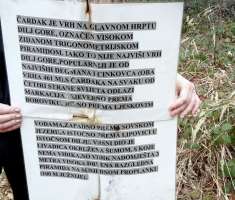 ČARDAK JE VRH NA GLAVNOM HRPTU
DILJ GORE, OZNAČEN VISOKOM
ZIDANOM TRIGONOMETRIJSKOM
PIRAMIDOM. IAKO TO NIJE NAJVIŠI VRH
DILJ GORE, POPULARNIJI JE OD
NAJVIŠIH DEGMANA I CINKOVCA (OBA
VRHA 461 M). S ČARDAKA NA SVAKU OD
ČETIRI STRANE SVIJETA ODLAZI
MARKACIJA, SJEVERNO PREMA
BOROVIKU, JUŽNO PREMA LJESKOVIM
VODAMA, ZAPADNO PREMA SOVSKOM
JEZERU, A ISTOČNO PREMA LIPOVICI I
ISTOČNOM DILJU. VRŠNI DIO JE
LIVADICA OKRUŽENA ŠUMOM, S KOJE
NEMA VIDIKA, NO VIDIK NADOMJEŠTA 3
METRA VISOKA DRVENA RAZGLEDNA
PIRAMIDA NA SUSJEDNOM PROPLANKU
(100 M JUŽNIJE)